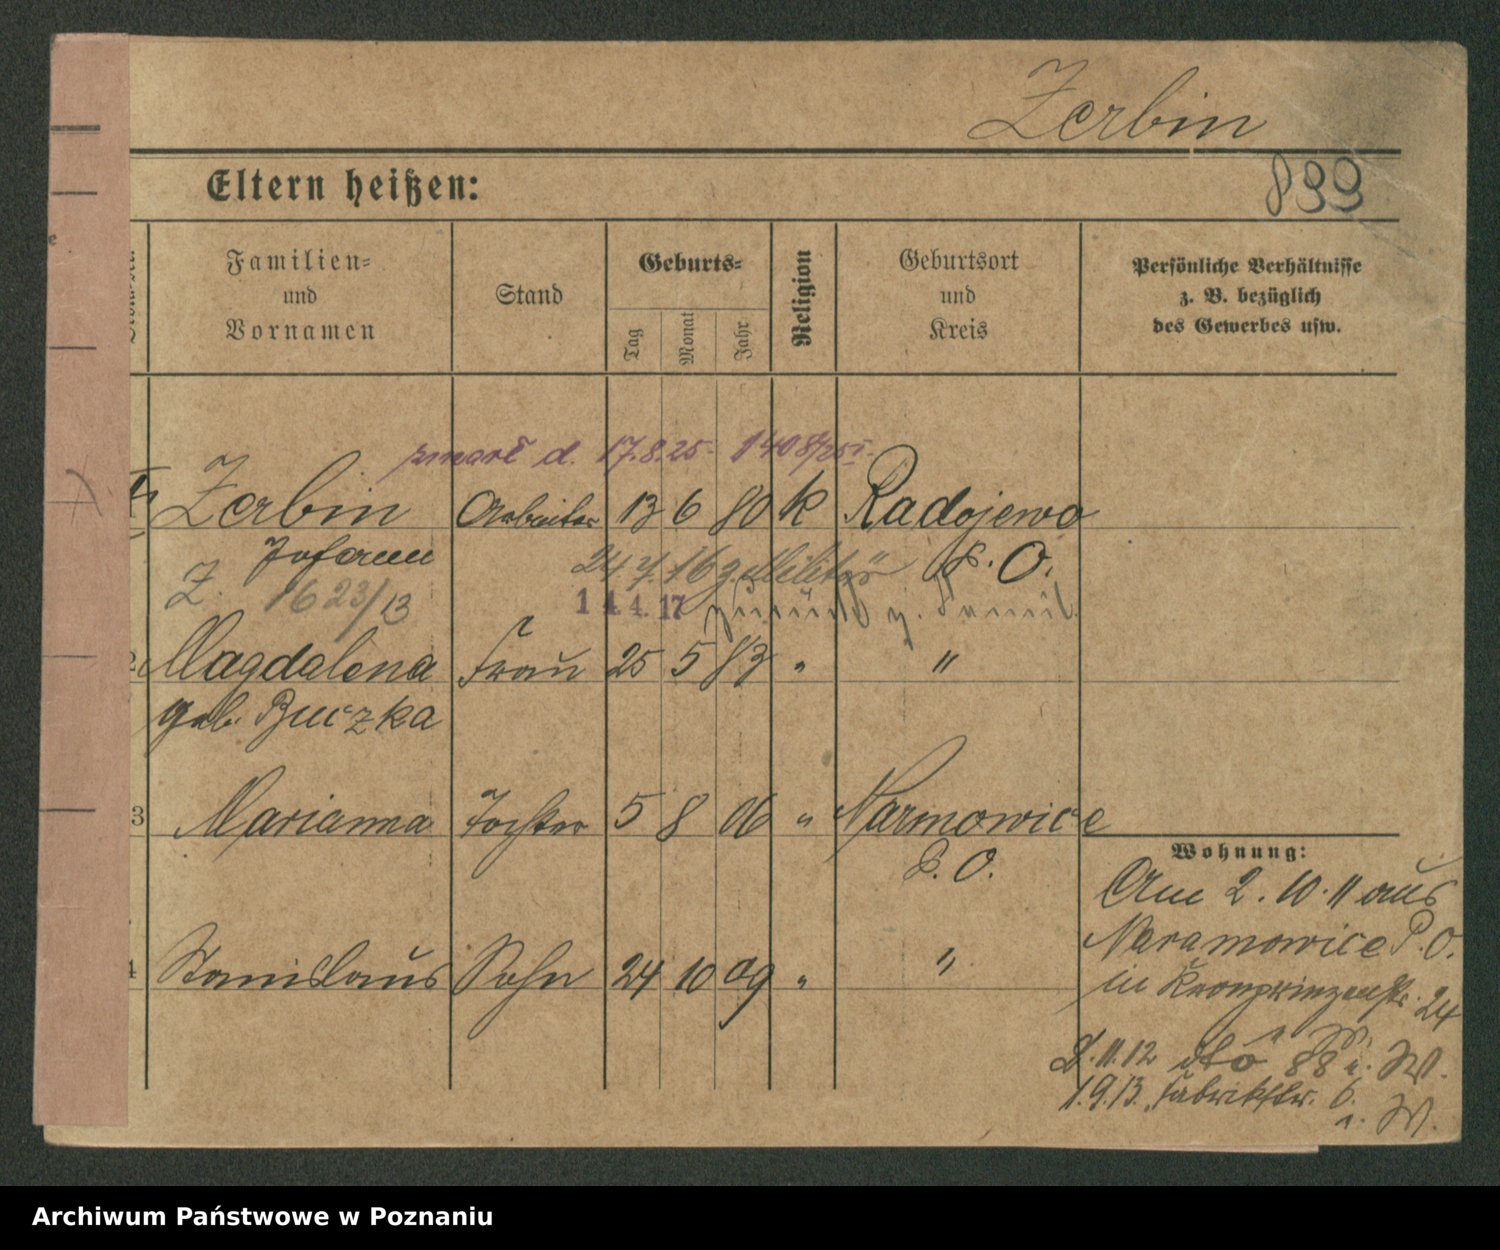 Zerbin
899
Eltern heißen:
Familien-
und
Vornamen
Stand
Geburts-
Tag
Monat
Jahr
Religion
Geburtsort
und
Kreis
Persönliche Verhältnisse
z. B. bezüglich
des Gewerbes usw.
zmarł d. 17.8.25. 1408/25 I.
Zerbin Arbeiter 13 6 80 k Radojewo
Johann P. O.
24.7.16 z. Militär
Z. 1623/13
14.4.17 zurück v. Militär
2 Magdalena Frau 25 5 83 " "
geb. Buczka
3 Marianna Tochter 5 8 06 " Narmowice
P. O.
4 Stanislaus Sohn 24 10 09 " "
Wohnung:
Am 2.10.11 aus
Naramowice P. O.
in Kronprinzenstr. 24
a. W.
2.11.12 dto 88 a. W.
1.9.13. Fabrikstr. 6.
a. W.
Archiwum Państwowe w Poznaniu